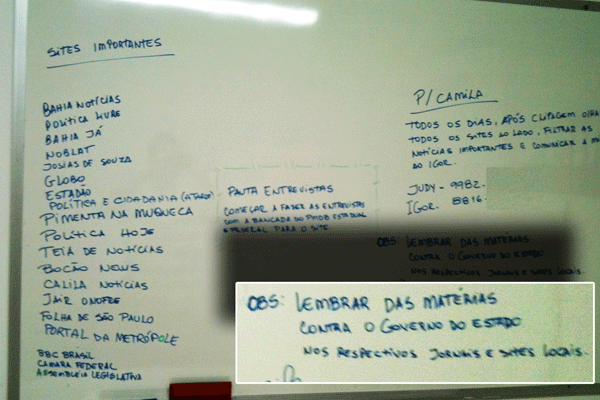 SITES IMPORTANTES
BAHIA NOTÍCIAS
POLÍTICA LIVRE
BAHIA JÁ
NOBLAT
JOSIAS DE SOUZA
GLOBO
ESTADÃO
POLÍTICA E CIDADANIA (ATARDE)
PIMENTA NA MUQUECA
POLÍTICA HOJE
TEIA DE NOTÍCIAS
BOCÃO NEWS
CALILA NOTÍCIAS
JAIR ONOFRE
FOLHA DE SÃO PAULO
PORTAL DA METRÓPOLE
BBC BRASIL
CAMARA FEDERAL
ASSEMBLEIA LEGISLATIVA
PAUTA ENTREVISTAS
COMEÇAR A FAZER AS ENTREVISTAS
COM A BANCADA DO PMDB ESTADUAL
E FEDERAL PARA O SITE
P/ CAMILA
TODOS OS DIAS, APÓS CLIPAGEM OLHA
TODOS OS SITES AO LADO, FILTRAR AS
NOTÍCIAS IMPORTANTES E COMUNICAR A
AO IGOR.
JUDY - 9982.
IGOR. 8816.
OBS: LEMBRAR DAS MATÉRIAS
CONTRA O GOVERNO DO ESTADO
NOS RESPECTIVOS JORNAIS E SITES LOCAIS.
OBS: LEMBRAR DAS MATÉRIAS
CONTRA O GOVERNO DO ESTADO
NOS RESPECTIVOS JORNAIS E SITES LOCAIS.